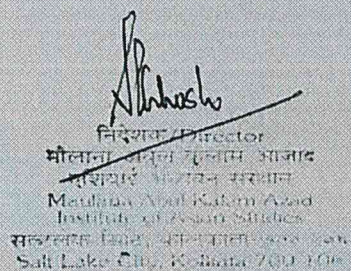 निदेशक/Director
मौलाना अबुल कलाम आजाद
एशियाई अध्ययन संस्थान
Maulana Abul Kalam Azad
Institute of Asian Studies
कोलकाता
Salt Lake City, Kolkata 700 106